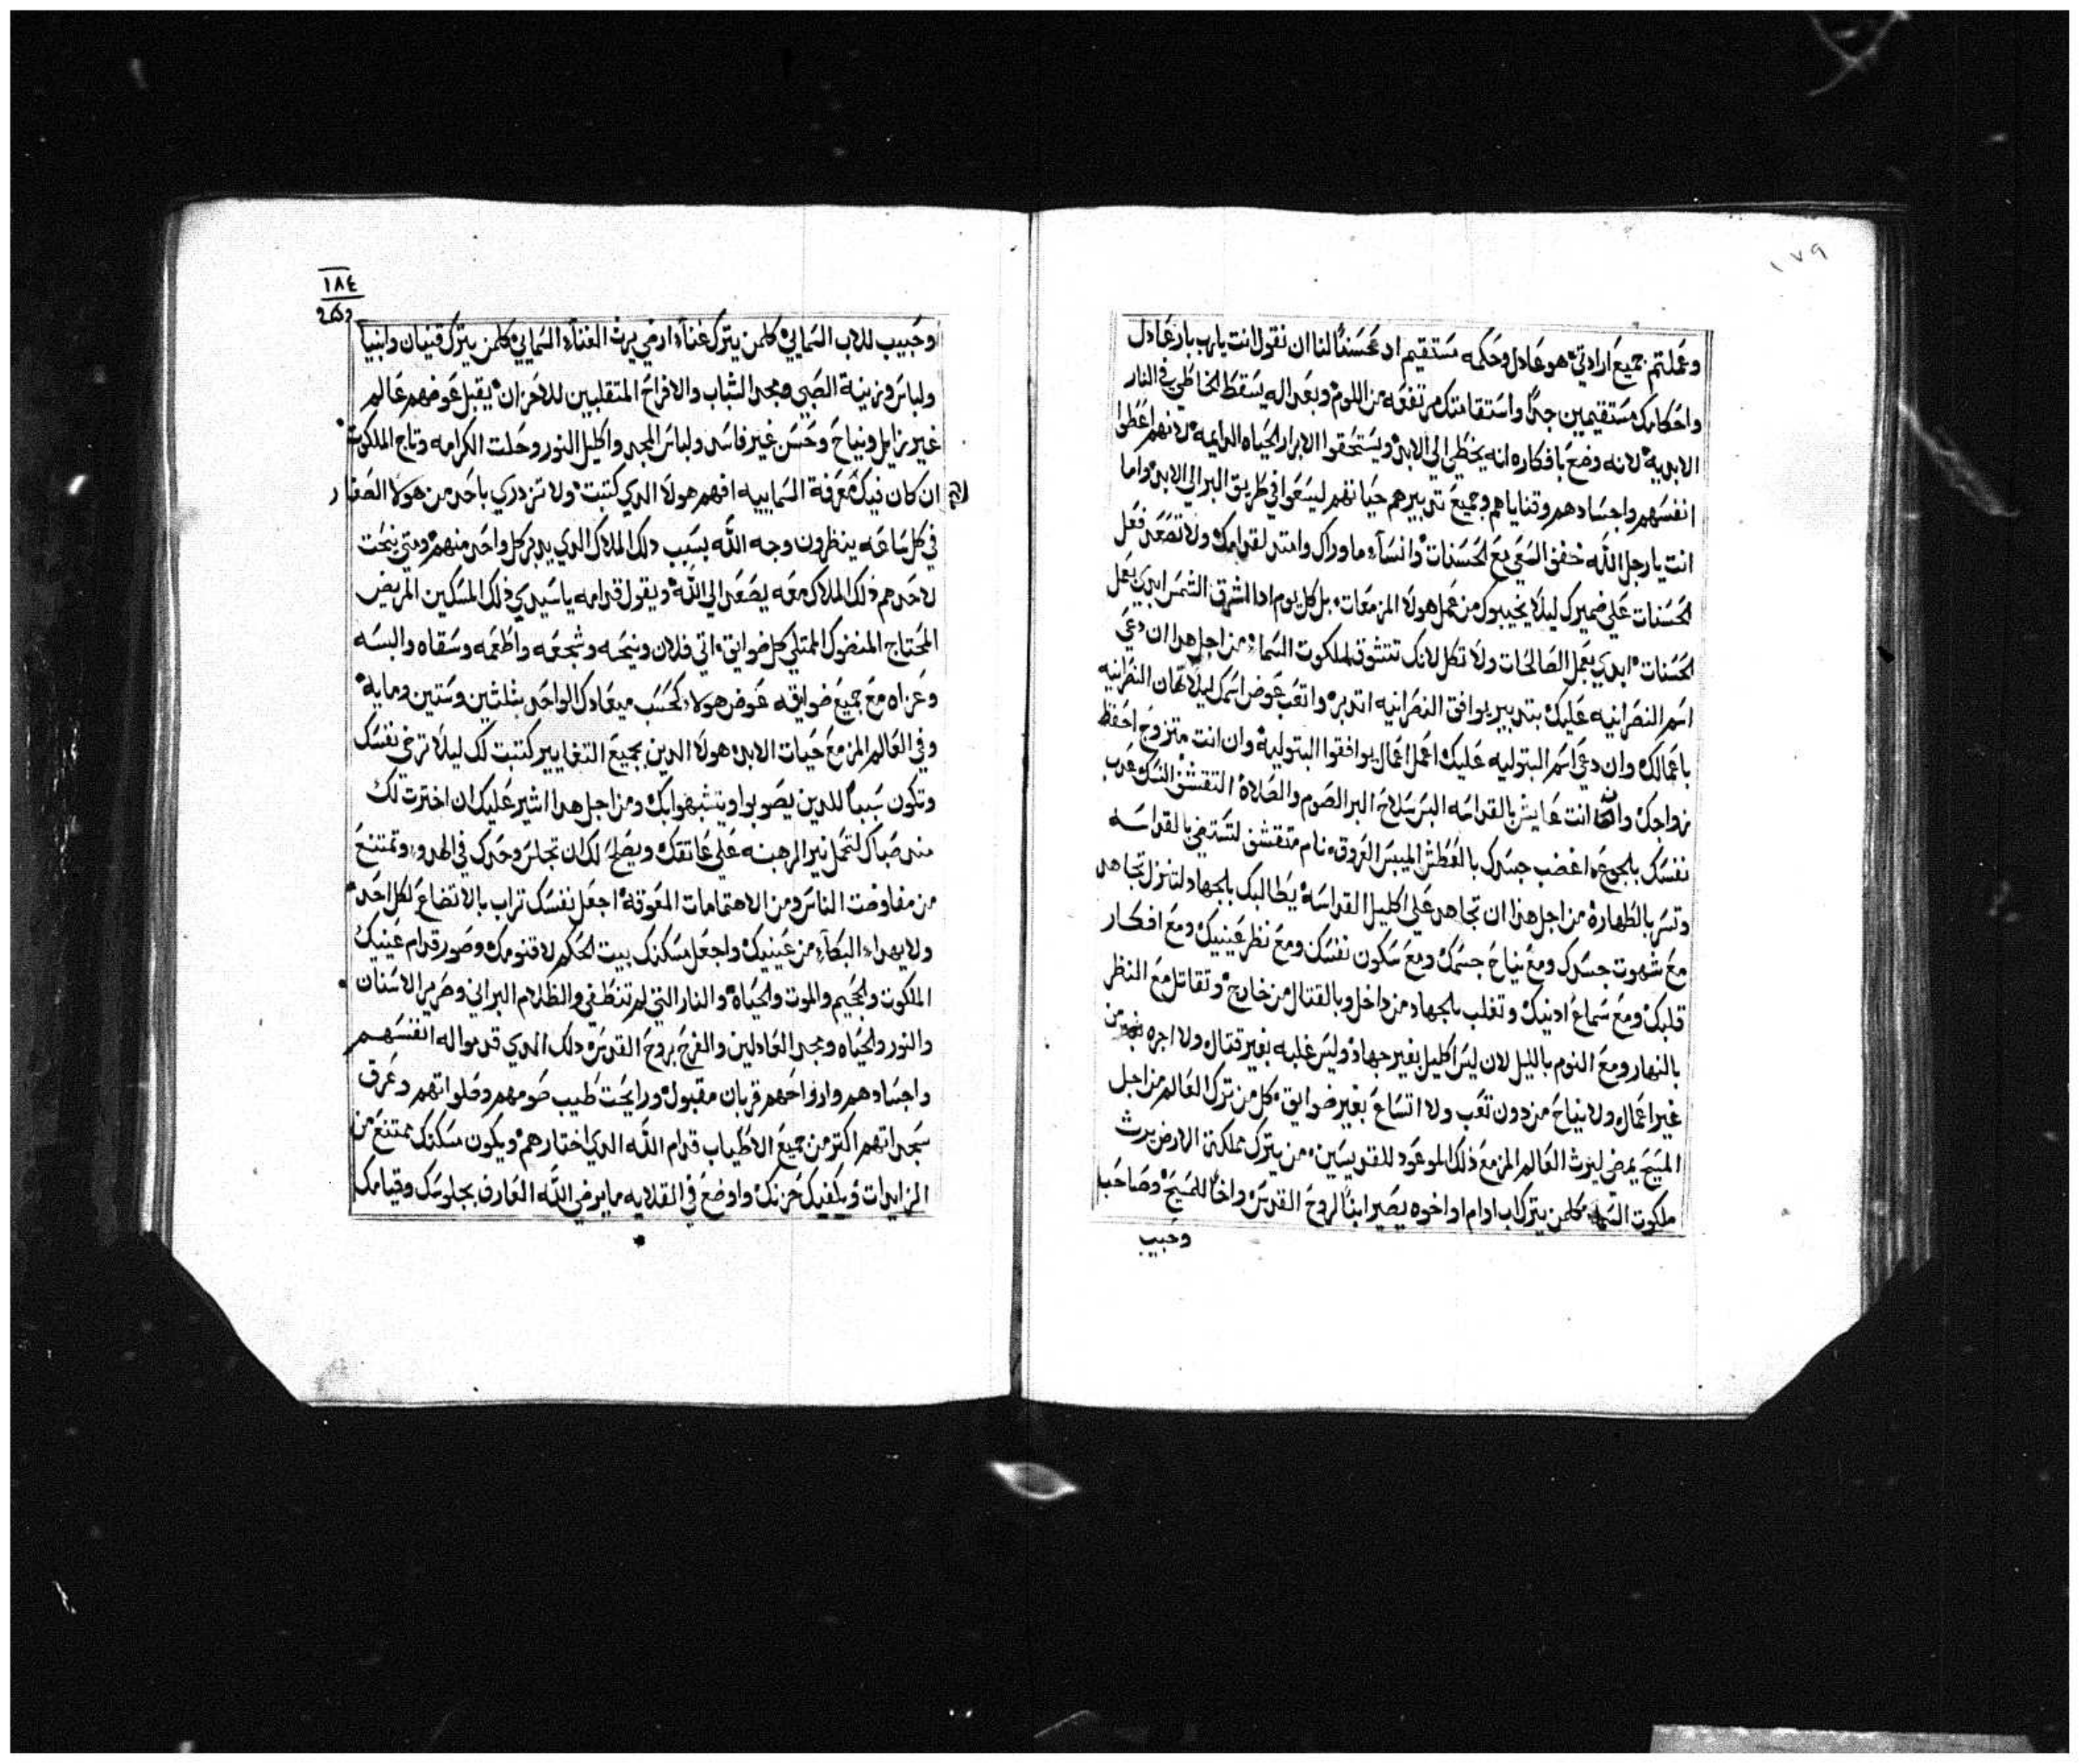 ١٧٩
وعملتم جميع ارادتي هو عادل وحكمه مستقيم اد محسنًا لنا ان نقول انت يارب بار عادل
واحكامك مستقيمين جدًا واستقامتك مرتفعه من اللوم وبعداله يسقط الخاطي في النار
الابديه لانه وضع بافكاره انه يخطي الي الابد ويستحقوا الابرار الحياه الدايمه لانهم اعطوا
انفسهم واجسادهم وقناياهم وجميع تدبيرهم حياتهم ليسعوا في طريق البر الي الابد واما
انت يارجل الله خفف السعي مع الحسنات وانسا ما وراك وامتد لقدامك ولا تصعد فعل
الحسنات علي ضميرك ليلا يخيبوك من عمل هولا المزمعات بل كل يوم ادا اشرق الشمس ابدي بعمل
الحسنات ابدي بعمل الصالحات ولا تكل لانك تتشوق لملكوت السماء من اجل هدا ان دعي
اسم النصرانيه عليك بتدبير يوافق النصرانيه اتدبر واتعب عوض اسمك ليلا تهان النصرانيه
باعمالك وان دعي اسم البتوليه عليك اعمل اعمال يوافقوا البتوليه وان انت متزوج احفظ
زواجك وان انت عايش بالقداسه البس سلاح البر الصوم والصلاه التقشف النسك عدب
نفسك بالجوع اغضب جسدك بالعطش الميبس العروق نام متقشف لتستضي بالقداسه
وتسر بالطهاره من اجل هدا ان تجاهد علي اكليل القداسه يطالبك بالجهاد لتنزل تجاهد
مع شهوت جسدك ومع نياح جسمك ومع سكون نفسك ومع نظر عينيك ومع افكار
قلبك ومع سماع ادنيك وتغلب بالجهاد من داخل وبالقتال من خارج وتقاتل مع النظر
بالنهار ومع النوم بالليل لان ليس اكليل بغير جهاد وليس غلبه بغير قتال ولا اجره من
غير اعمال ولا نياح من دون تعب ولا اتساع بغير ضوايق كل من ترك العالم من اجل
المسيح يمضي ليرث العالم المزمع ذلك الموعود للقديسين من يترك مملكة الارض يرث
ملكوت السما كلمن يترك اب او ام او اخوه يصير ابنًا لروح القدس واخًا للمسيح وصاحب
وحبيب
١٨٤
وحبيب للاب السمايي كلمن يترك غناء ارضي يرث الغناء السمايي كلمن يترك قنيان وابنيا
ولباس وزينة الصبي ومجد الشباب والافراح المتقلبين للاحزان يقبل عوضهم عالم
غير زايل ونياح وحسن غير فاسد ولباس المجد واكليل النور وحلت الكرامه وتاج الملكوت
ان كان فيك معرفة السماييه افهم هولا الدي كتبت ولا تزدري باحد من هولا الصغار
في كل ساعه ينظرون وجه الله بسبب دلك الملاك الدي يدبر كل واحد منهم ومتي نيحت
لاحدهم ذلك الملاك معه يصعد الي الله ويقول قدامه ياسيدي ذلك المسكين المريض
المحتاج المنضوك الممتلي كل ضوايق اتي فلان ونيحه وشجعه واطعمه وسقاه والبسه
وعزاه مع جميع ضوايقه عوض هولا كحسب ميعادك الواحد بثلثين وستين ومايه
وفي العالم المزمع حيات الابد هولا الدين بجميع التغايير كتبت لك ليلا ترخي نفسك
وتكون سببًا للدين يصوبوا ويتشبهوا بك ومن اجل هدا اشير عليك ان اخترت لك
مند صباك لتحمل نير الرهبنه علي عاتقك ويصلح لك ان تجلس وحدك في الهدو وتمتنع
من مفاوضت الناس ومن الاهتمامات المعوقه اجعل نفسك تراب بالاتضاع لكل احد
ولا يهدا البكاء من عينيك واجعل مسكنك بيت الحكم لاقنومك وصور قدام عينيك
الملكوت والجحيم والموت والحياه والنار التي لم تنطفي والظلام البراني وصرير الاسنان
والنور والحياه ومجد العادلين والفرح بروح القدس دلك الدي قدموا له انفسهم
واجسادهم وارواحهم قربان مقبول ورايحت طيب صومهم وصلواتهم وعرق
سجداتهم اكتر من جميع الاطياب قدام الله الدي اختارهم ويكون مسكنك ممتنع من
الزايدات ويكفيك حزنك واوضع في القلايه ما يرضي الله العارف بجلوسك وقيامك